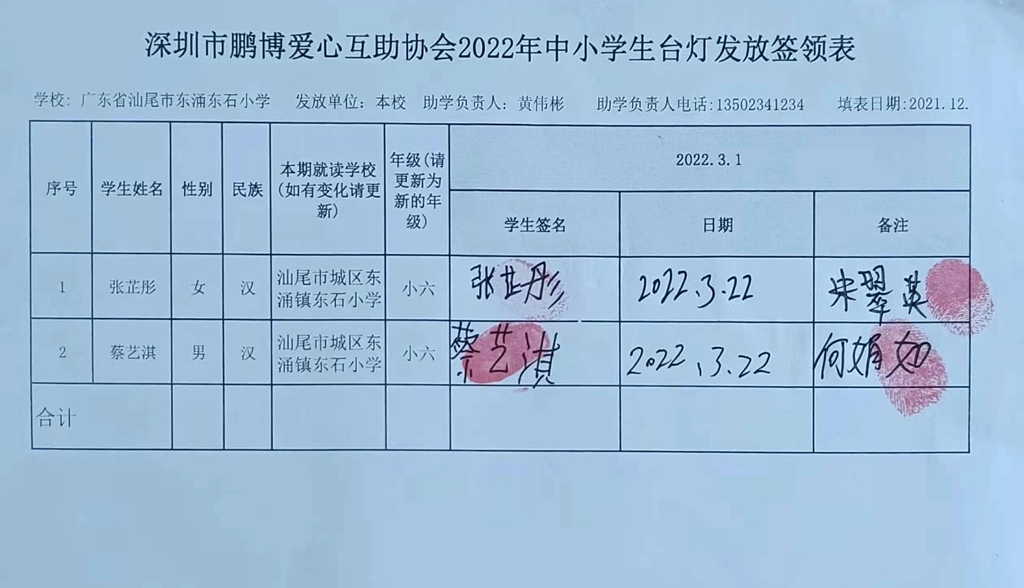 深圳市鹏博爱心互助协会2022年中小学生台灯发放签领表
学校: 广东省汕尾市东涌东石小学 发放单位: 本校 助学负责人: 黄伟彬 助学负责人电话:13502341234 填表日期:2021.12.
序号 学生姓名 性别 民族 本期就读学校(如有变化请更新) 年级(请更新为新的年级) 2022.3.1
学生签名 日期 备注
1 张芷彤 女 汉 汕尾市城区东涌镇东石小学 小六 张芷彤 2022.3.22 宋翠英
2 蔡艺淇 男 汉 汕尾市城区东涌镇东石小学 小六 蔡艺淇 2022.3.22 何娟如
合计